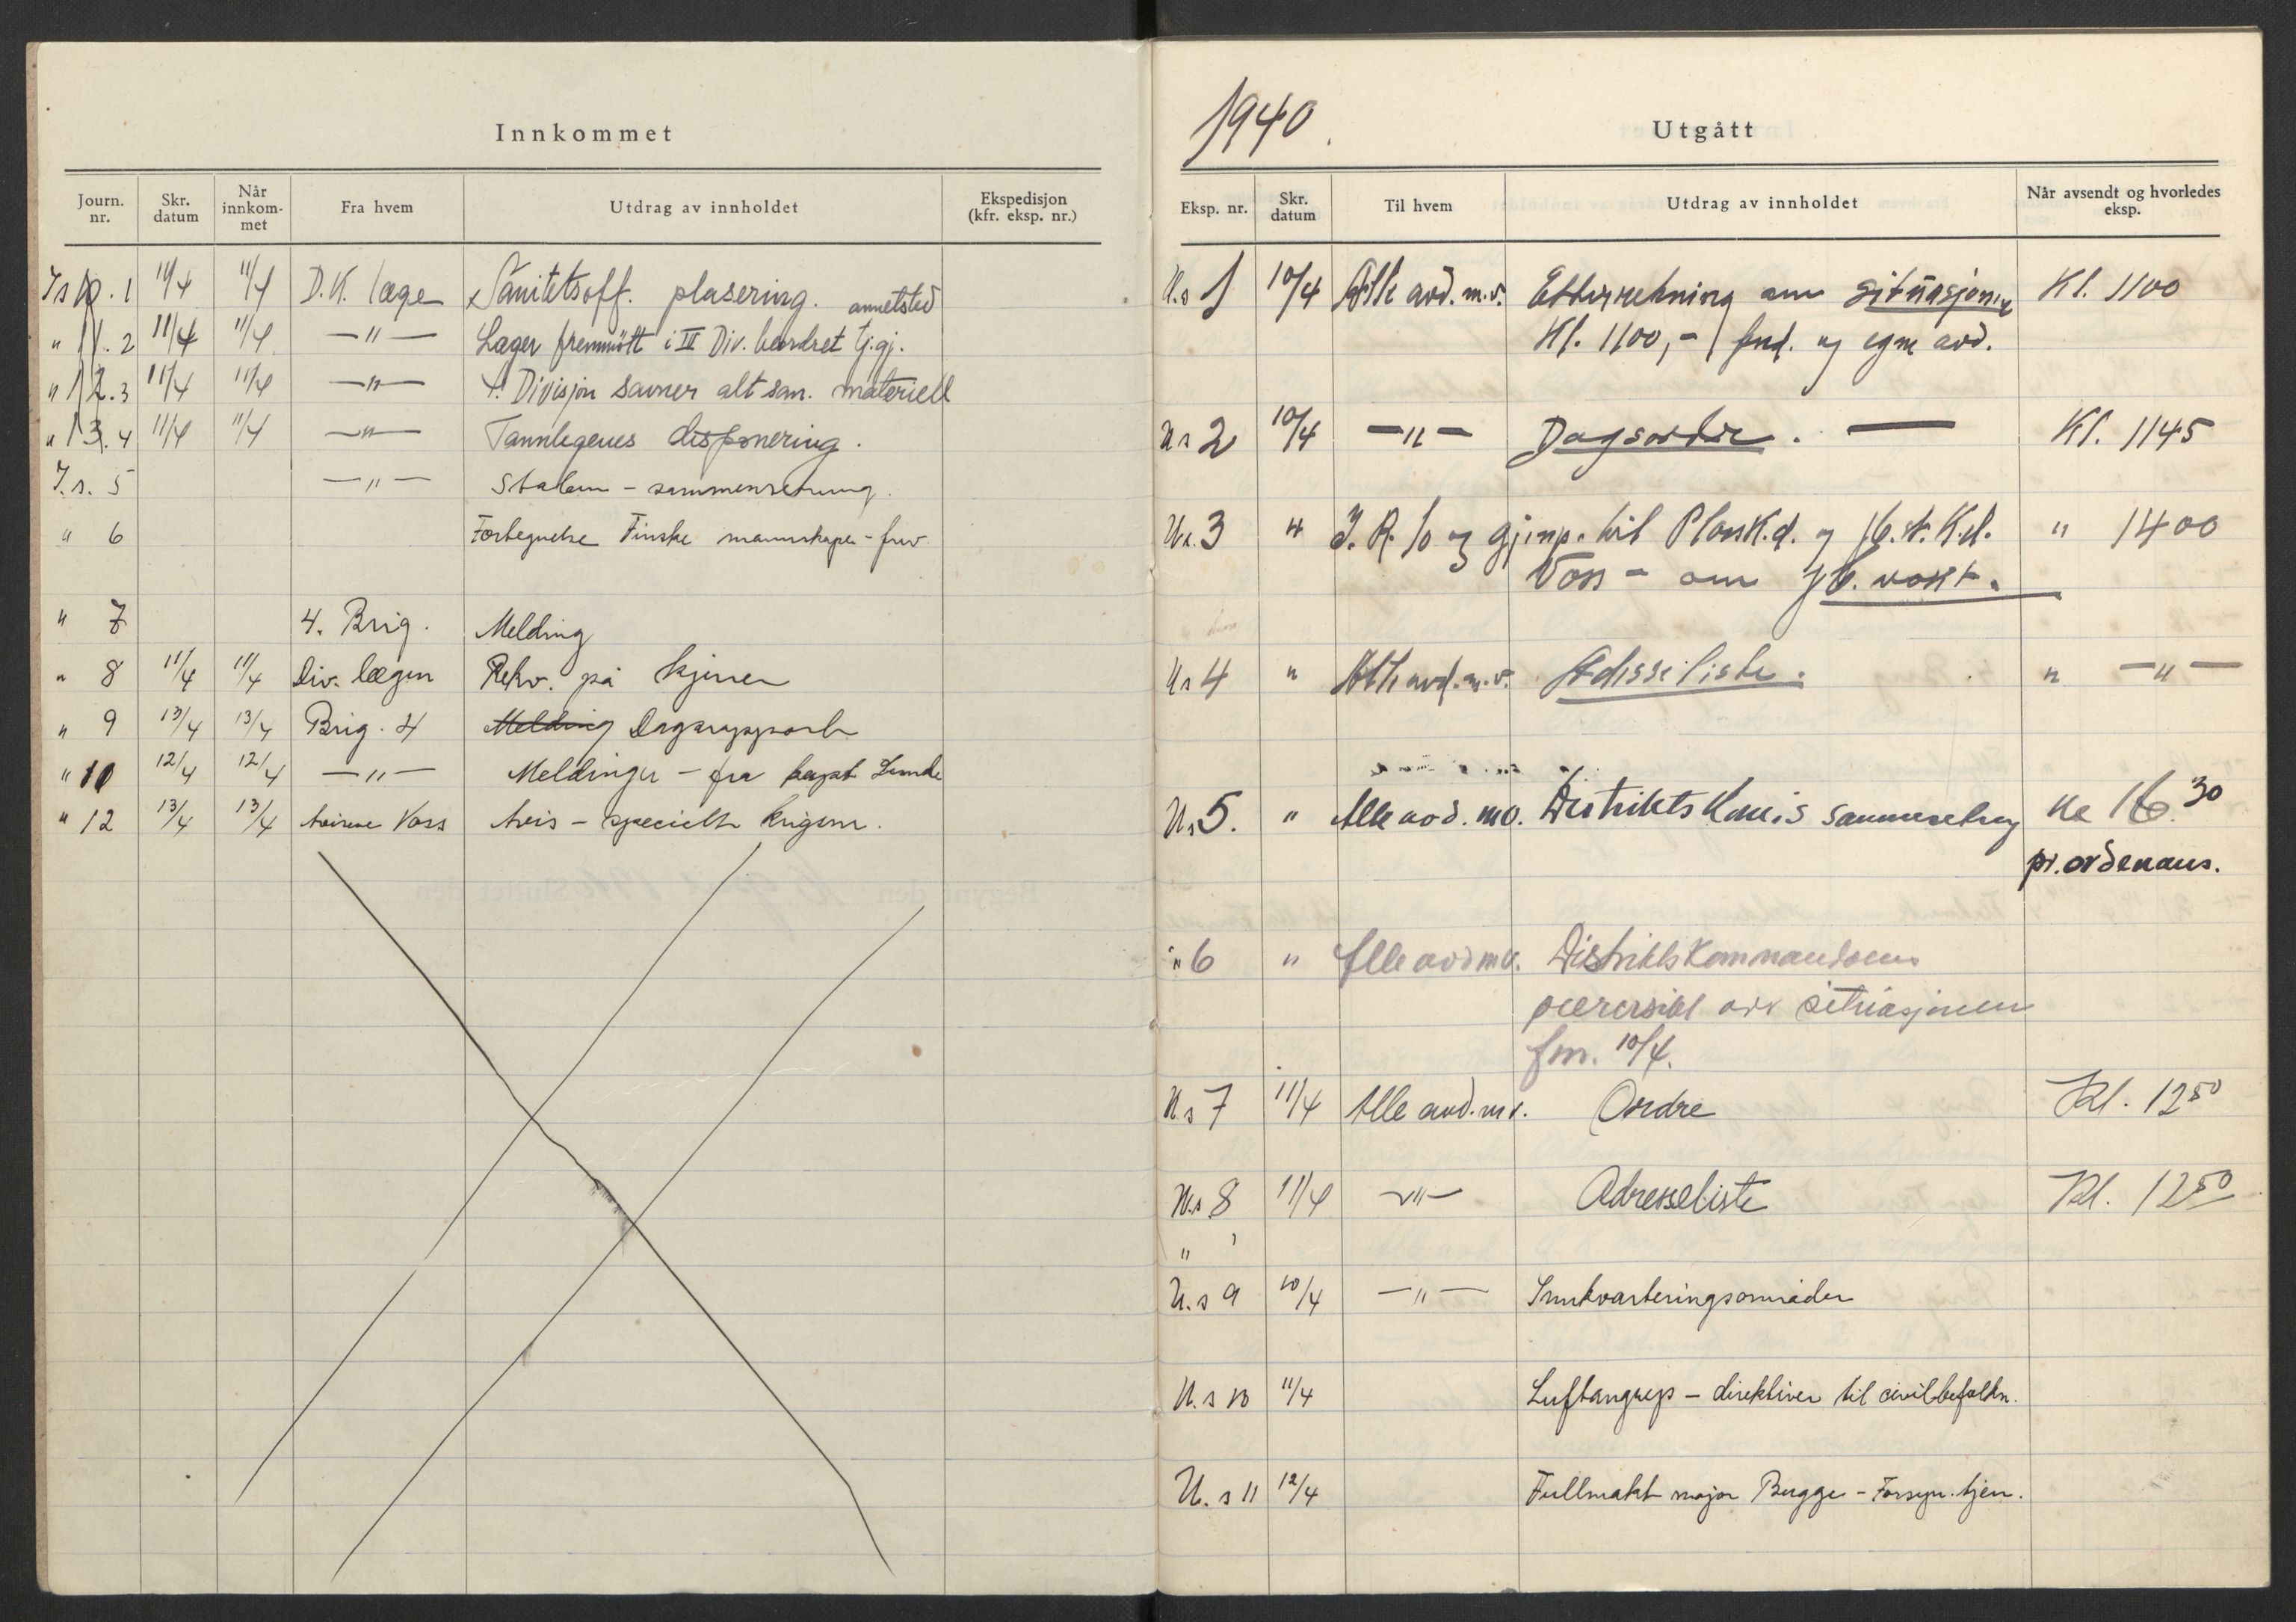 Innkommet
Journ. nr. Skr. datum Når innkommet Fra hvem Utdrag av innholdet Ekspedisjon (kfr. eksp. nr.)
Js 1 11/4 11/4 D.K. læge Sanitetsoff. plasering. annetsted
" 2 11/4 11/4 —"— Læger fremmött i IV Div. beordret tj.gj.
" 3 11/4 11/4 —"— 4. Divisjon savner alt san. materiell
" 4 11/4 11/4 —"— Tannlegenes disponering.
J.s. 5 —"— Staben - sammensetning.
" 6 Fortegnelse Finske mannskaper -
" 7 4. Brig. Melding
" 8 11/4 11/4 Div. lægen Rekv. på
" 9 13/4 13/4 Brig. 4 Melding Dagsrapport
" 10 12/4 12/4 —"— Meldinger - fra kapt Lunde
" 12 13/4 13/4 Avisene Voss Avis - specielt krigen.
1940.
Utgått
Eksp. nr. Skr. datum Til hvem Utdrag av innholdet Når avsendt og hvorledes eksp.
U.s 1 10/4 Alle avd. m.v. Etterretning om situasjonen Kl. 1100
Kl. 1100,- fnd. og egne avd.
U s 2 10/4 —"— Dagsordre. — Kl. 1145
U s. 3 " J.R. 10 og til Plassk.d. og " 1400
Voss - om vakt.
U s 4 " Alle avd. m.v. Adresseliste. " —"—
U s 5. " Alle avd. mv. Distriktskom.s sammensetning Kl 16.30
pr. ordonans.
" 6 " Alle avd mv. Distriktskommandoens
oversikt over situasjonen
fm. 10/4.
U s 7 11/4 Alle avd. mv. Ordre Kl. 1250
U.s 8 11/4 —"— Adresseliste Kl. 1250
"
U. s 9 10/4 —"— Innkvarteringsområder
U. s 10 11/4 Luftangrep - direktiver til civilbefolkn.
U. s 11 12/4 Fullmakt major Bugge - Forsyn. tjen.